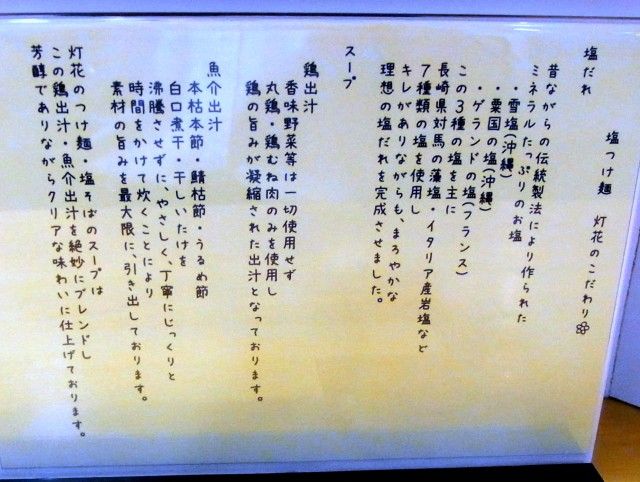 塩つけ麺 灯花のこだわり
塩だれ
昔ながらの伝統製法により作られた
ミネラルたっぷりのお塩
・雪塩(沖縄)
・粟国の塩(沖縄)
・ゲランドの塩(フランス)
この3種の塩を主に
長崎県対馬の藻塩・イタリア産岩塩など
7種類の塩を使用し
キレがありながらも、まろやかな
理想の塩だれを完成させました。
スープ
鶏出汁
香味野菜等は一切使用せず
丸鶏・鶏むね肉のみを使用し
鶏の旨みが凝縮された出汁となっております。
魚介出汁
本枯本節・鯖枯節・うるめ節
白口煮干・干しいたけを
沸騰させずに、やさしく、丁寧にじっくりと
時間をかけて炊くことにより
素材の旨みを最大限に、引き出しております。
灯花のつけ麺・塩そばのスープは
この鶏出汁・魚介出汁を絶妙にブレンドし
芳醇でありながらクリアな味わいに仕上げております。